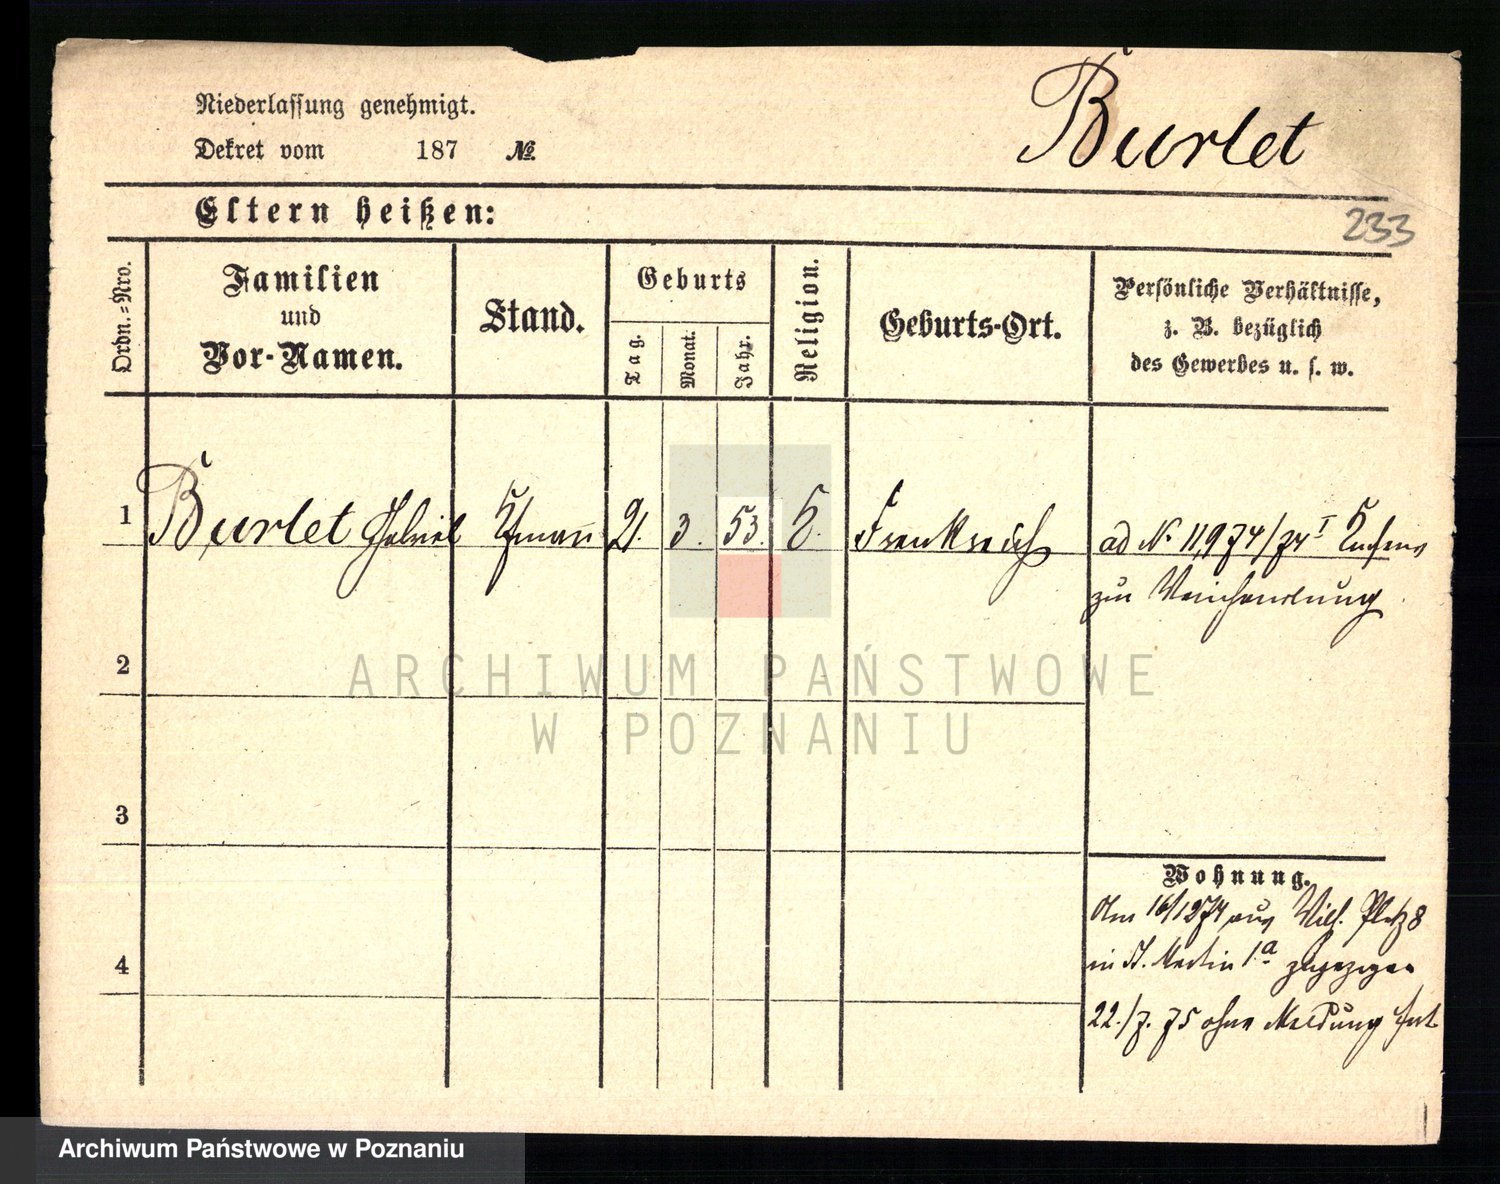 Niederlassung genehmigt.
Dekret vom 187 №
Burlet
Eltern heißen:
233
Ordn.-Nro.
Familien
und
Vor-Namen.
Stand.
Geburts
Tag.
Monat.
Jahr.
Religion.
Geburts-Ort.
Persönliche Verhältnisse,
z. B. bezüglich
des Gewerbes u. s. w.
1 Burlet Gabriel 21. 3. 53. Frankreich ad No 11974/74 I
zur Weinhandlung
2
3
4
Wohnung.
Am 16/12 74 aus Wilh. Platz 8
in St. Martin 1.a zugezogen
22./7. 75 ohne Meldung fort
ARCHIWUM PAŃSTWOWE
W POZNANIU
Archiwum Państwowe w Poznaniu